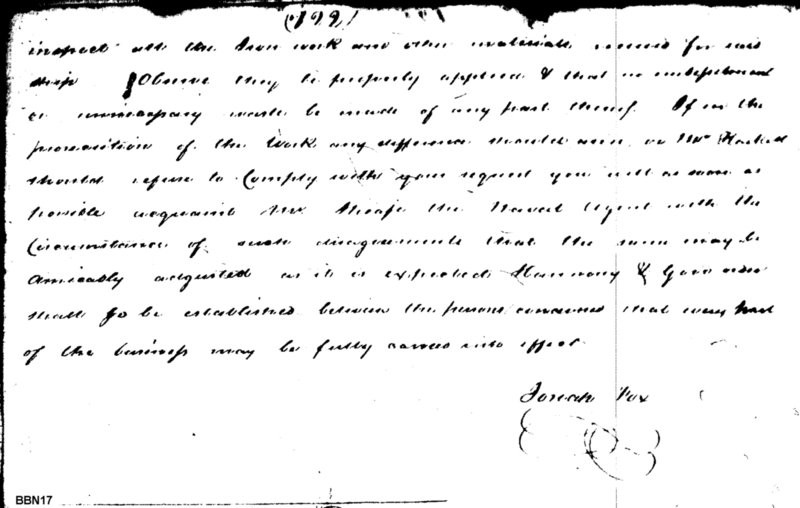 (199)
inspect all the Iron work and other materials received for said
Ship Observe they be properly applied & that no
or unnecessary waste be made of any part thereof. If in the
prosecution of the Work any difference should arise or Mr Hackett
should refuse to Comply with your request you will as soon as
possible acquaint Mr. Sheafe the Naval Agent with the
Circumstance of such disagreements that the same may be
Amicably adjusted as it is expected Harmony & Good order
shall so be established between the persons concerned that every part
of the business may be fully carried into effect.
Josiah Fox
BBN17